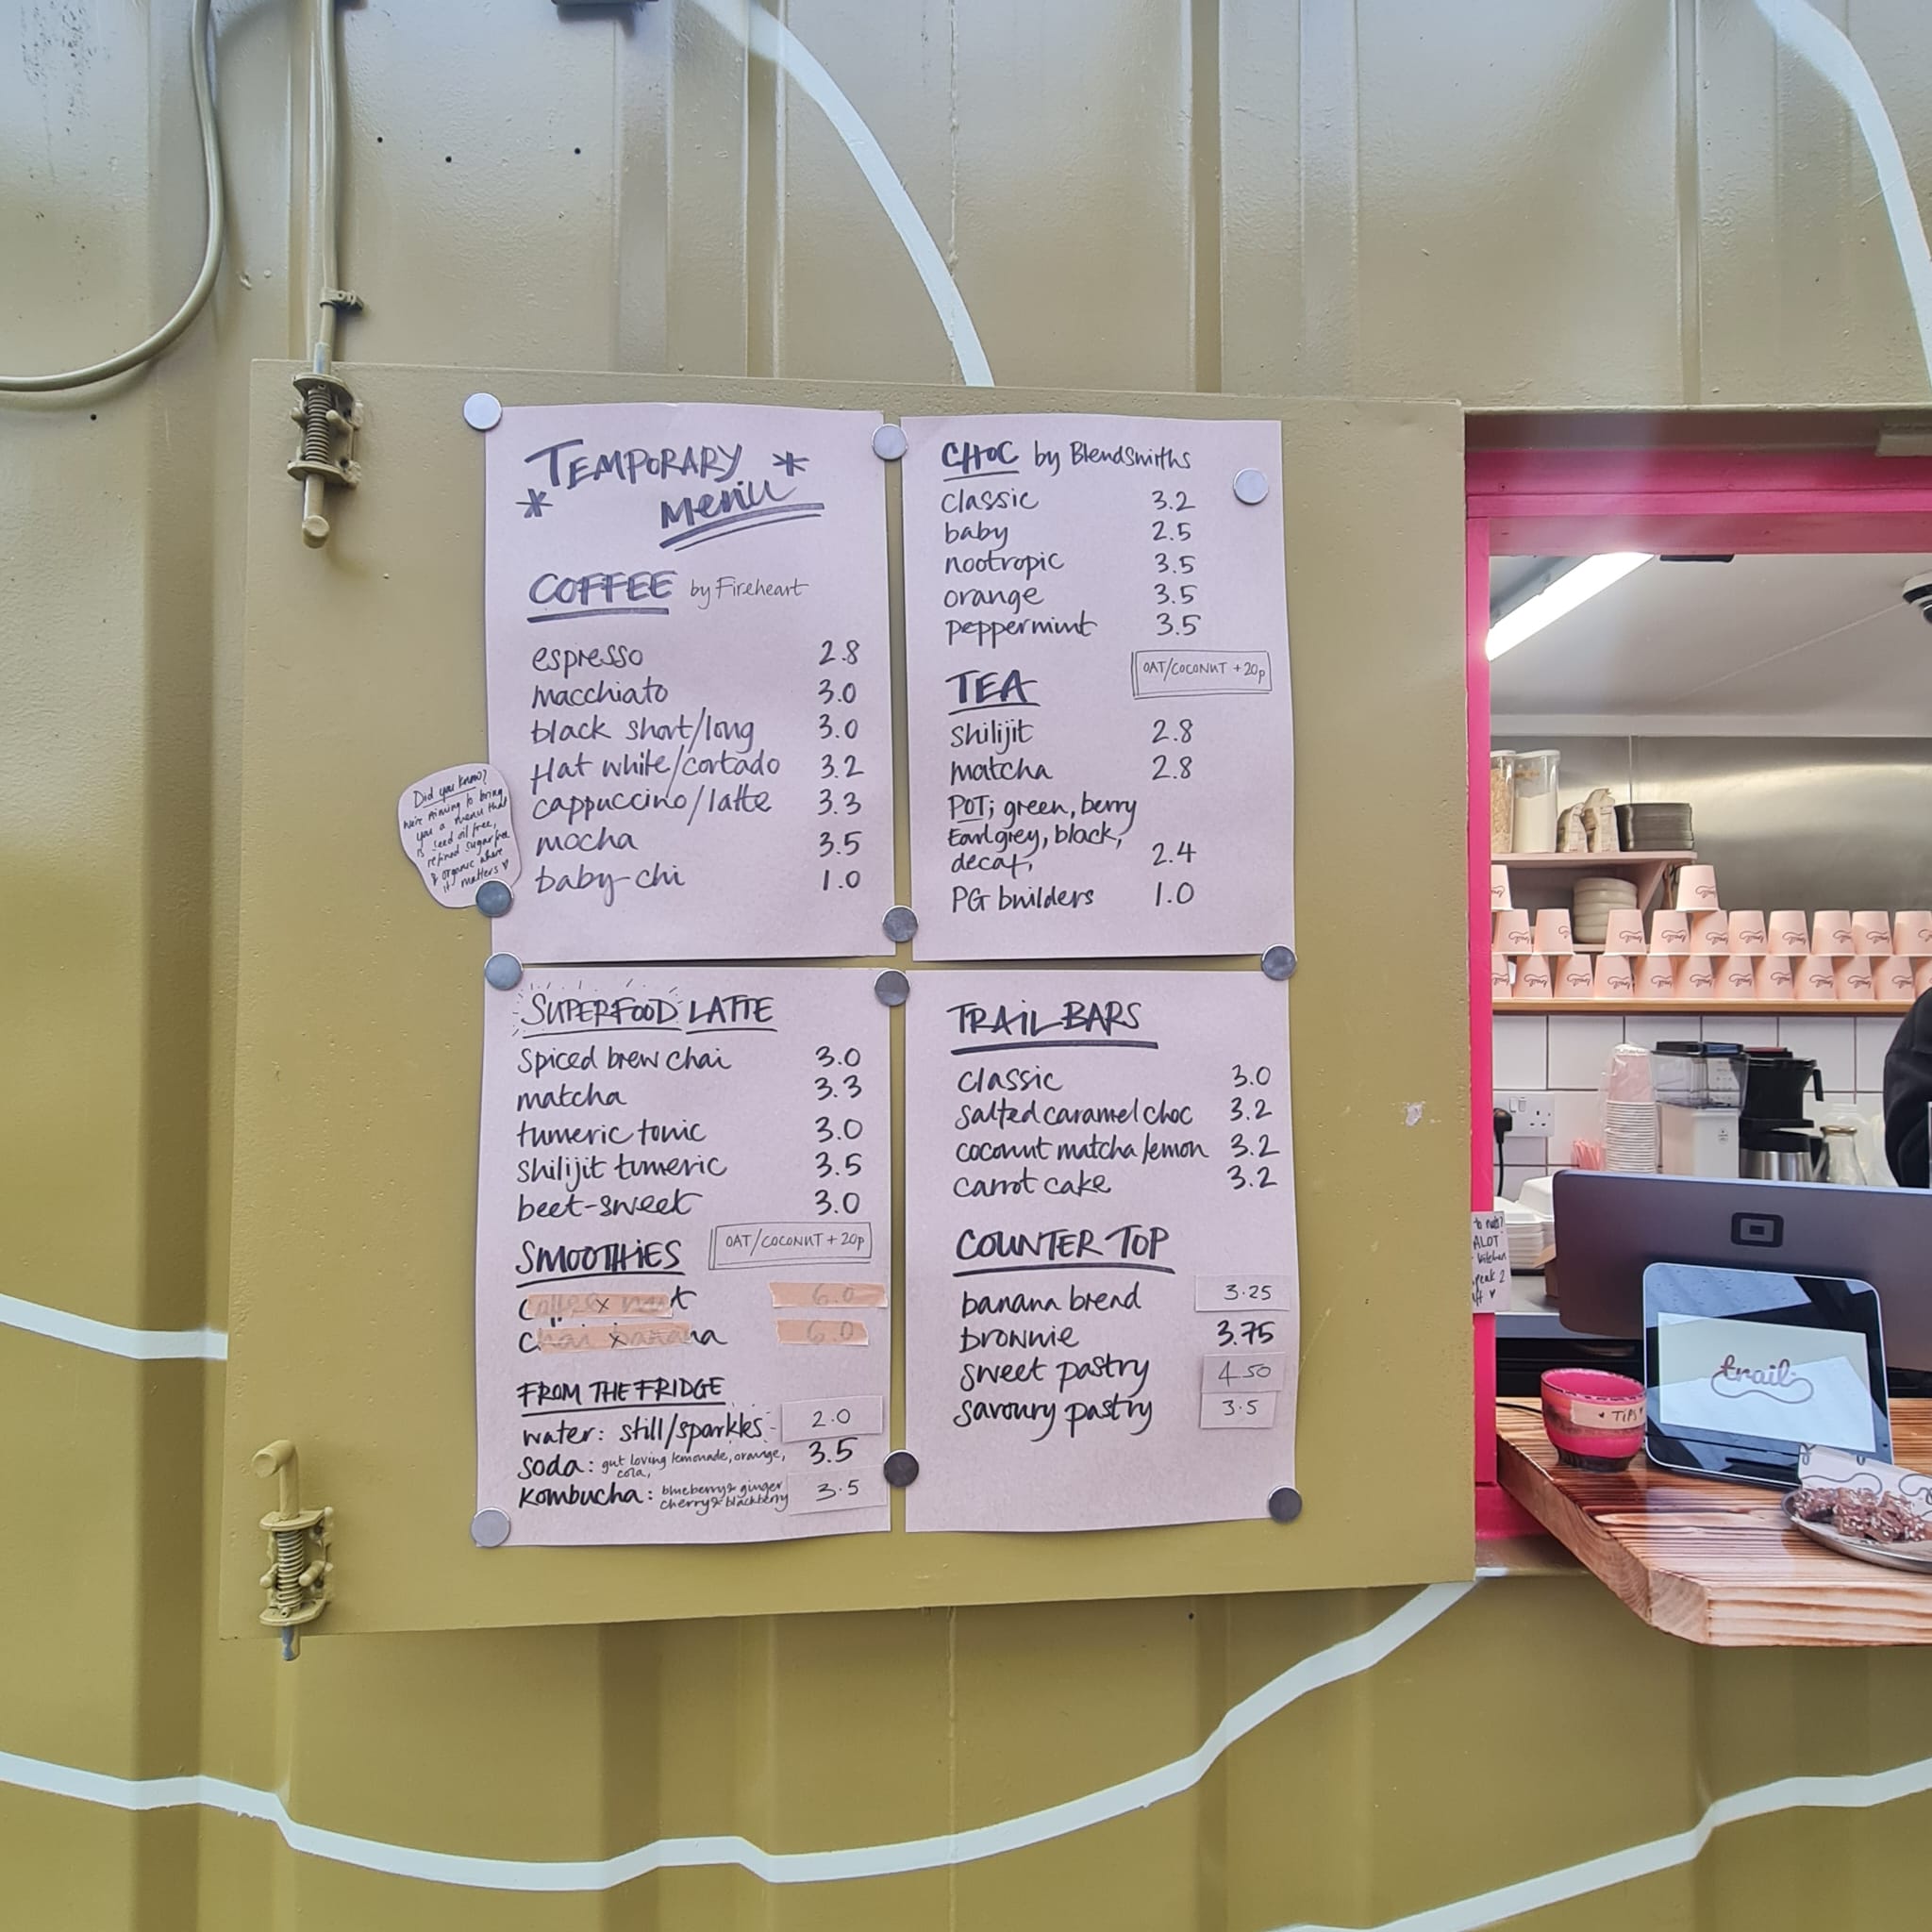 TEMPORARY
* menu *
COFFEE by Fireheart
espresso 2.8
macchiato 3.0
black short/long 3.0
flat white/cortado 3.2
cappuccino/latte 3.3
mocha 3.5
baby-chi 1.0
Did you know?
we're aiming to bring
you a menu that
is seed oil free,
refined sugar free
& organic where
it matters ♥
CHOC by Blendsmiths
classic 3.2
baby 2.5
nootropic 3.5
orange 3.5
peppermint 3.5
OAT/COCONUT +20p
TEA
shilijit 2.8
matcha 2.8
POT; green, berry
Earl grey, black,
decaf, 2.4
PG builders 1.0
SUPERFOOD LATTE
spiced brew chai 3.0
matcha 3.3
tumeric tonic 3.0
shilijit tumeric 3.5
beet-sweet 3.0
OAT/COCONUT +20p
SMOOTHIES
coffee x nut 6.0
chai x banana 6.0
FROM THE FRIDGE
water: still/sparkles 2.0
soda: gut loving lemonade, orange, 3.5
cola,
Kombucha: blueberry & ginger 3.5
cherry & blackberry
TRAIL BARS
classic 3.0
salted caramel choc 3.2
coconut matcha lemon 3.2
carrot cake 3.2
COUNTER TOP
banana bread 3.25
brownie 3.75
sweet pastry 4.50
savoury pastry 3.5
trail
♥ TIPS